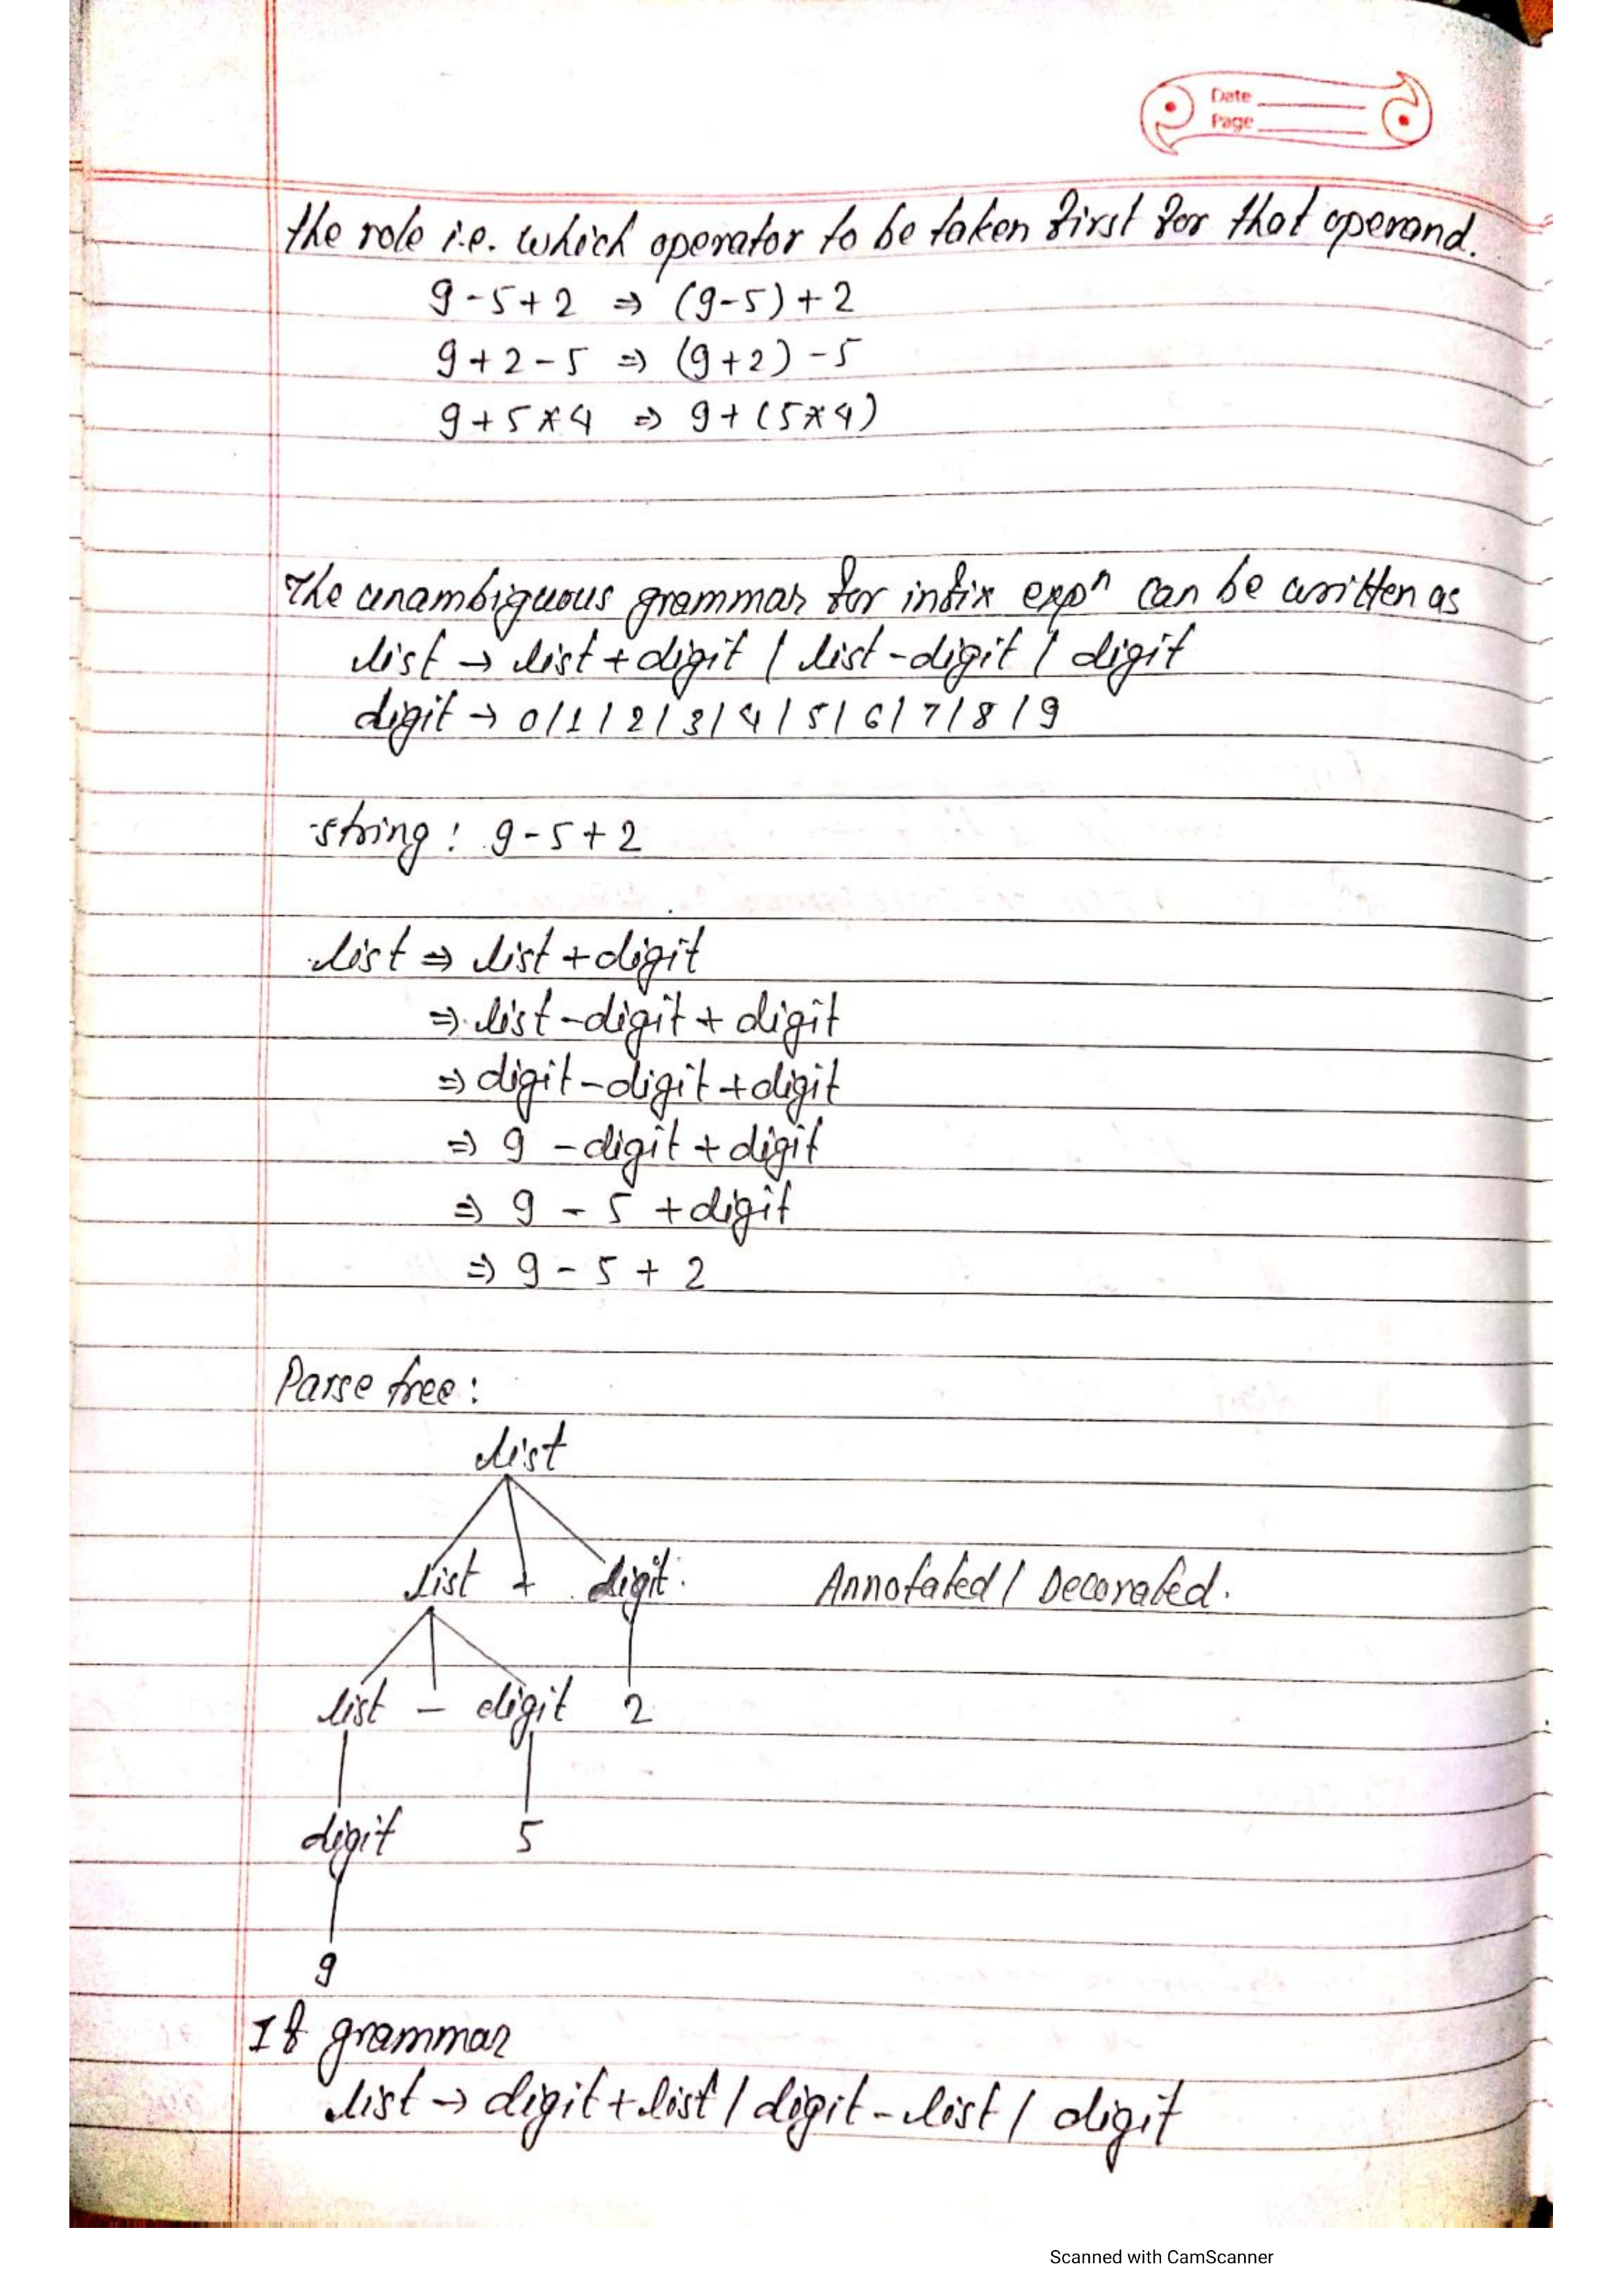 Date
Page
the role i.e. which operator to be taken first for that operand.
9-5+2 ⇒ (9-5)+2
9+2-5 ⇒ (9+2)-5
9+5*4 ⇒ 9+(5*4)
The unambiguous grammar for infix expⁿ can be written as
list → list+digit / list-digit / digit
digit → 0/1/2/3/4/5/6/7/8/9
string: 9-5+2
list ⇒ list+digit
⇒ list-digit+digit
⇒ digit-digit+digit
⇒ 9 -digit+digit
⇒ 9 - 5 +digit
⇒ 9 - 5 + 2
Parse tree:
list
list + digit Annotated / Decorated.
list - digit 2
digit 5
9
If grammar
list → digit+list / digit-list / digit
Scanned with CamScanner